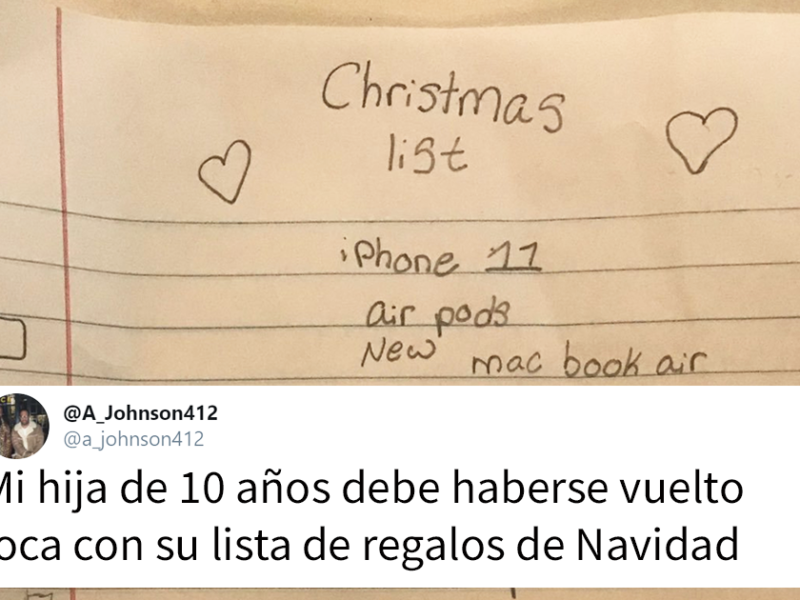 Christmas
list
iPhone 11
air pods
New mac book air
@A_Johnson412
@a_johnson412
Mi hija de 10 años debe haberse vuelto
oca con su lista de regalos de Navidad